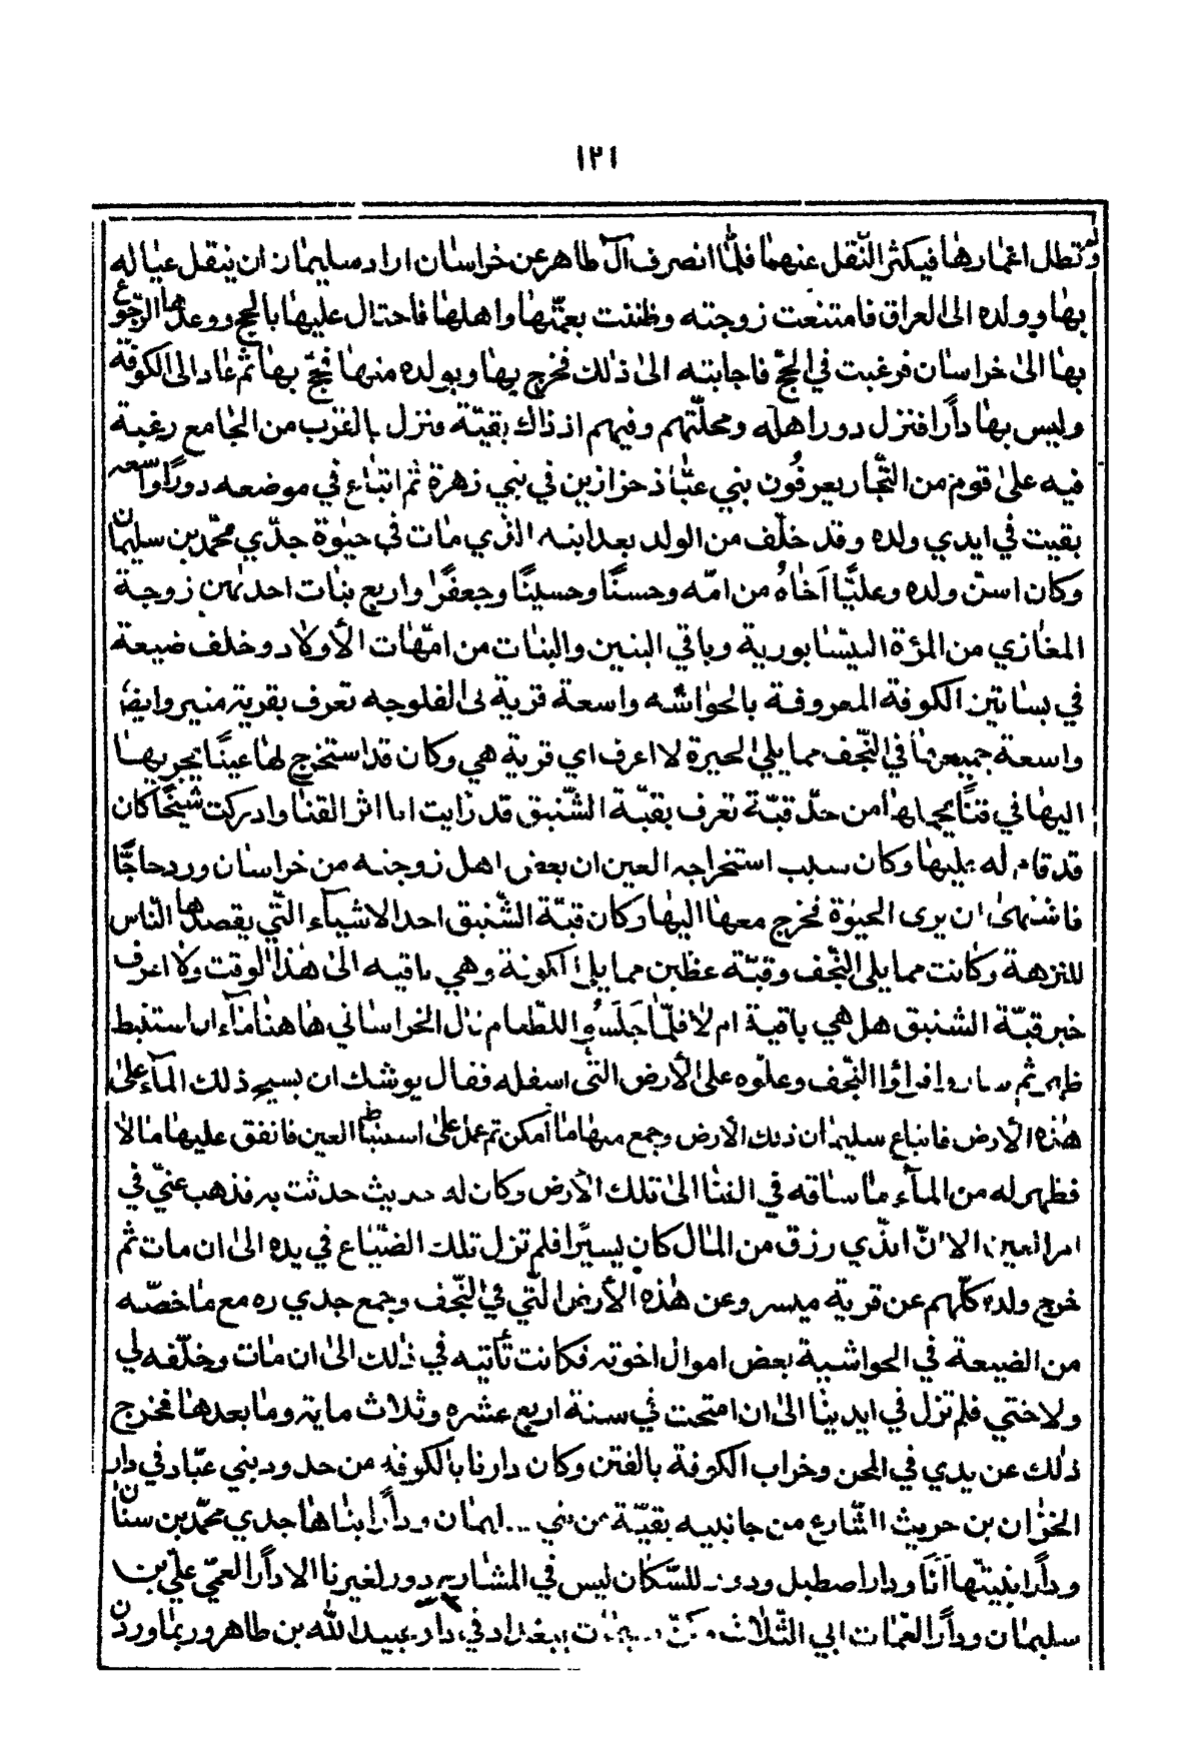 ١٢١
ولم تطل اعمارها فيكثر النّقل عنهما فلمّا انصرف آل طاهر عن خراسان اراد سليمان ان ينقل عياله
بها وولده الى العراق فامتنعت زوجته وظنّت بعمّتها واهلها فاحتال عليها بالحج ووعدها الرّجوع
بها الى خراسان فرغبت في الحجّ فاجابته الى ذلك فخرج بها وبولده منها فحجّ بها ثم عاد الى الكوفة
وليس بها دارًا فنزل دور اهله ومحلّتهم وفيهم اذ ذاك بقيّة فنزل بالقرب من الجامع رغبة
فيه على قوم من التّجار يعرفون ببني عبّاد خزازين في بني زهرة ثم ابتاع في موضعه دورًا واسعه
بقيت في ايدي ولده وقد خلّف من الولد بعد ابنه الذي مات في حيوة جدّي محمّد بن سليمان
وكان اسنّ ولده وعليًّا اخاهُ من امّه وحسنًا وحسينًا وجعفرًا واربع بنات احدٰيهن زوجة
المغازي من المرّة النيسابورية وباقي البنين والبنات من امّهات الأولاد وخلف ضيعة
في بساتين الكوفة المعروفة بالحواشه واسعة قرية لى الفلوجه تعرف بقرية منير وايضًا
واسعة جميعها في النّجف مما يلي الحيرة لا اعرف اي قرية هي وكان قد استخرج لها عينًا يجريها
اليها في قنًا يحملها من حدّ قبّة تعرف بقبّة الشّنبق قد رايت انا اثر القنا وادركت شيخًا كان
قد قام له عليها وكان سبب استخراجه العين ان بعض اهل زوجته من خراسان ورد حاجًّا
فاشتهى ان يرى الحيوة فخرج معها اليها وكان قبّة الشّنبق احد الاشياء التّي يقصدها النّاس
للنزهة وكانت مما يلي النّجف وقبّة عظين مما يلي الكوفة وهي باقيه الى هذا الوقت ولا اعرف
خبر قبّة الشنبق هل هي باقية ام لا فلمّا جلسُوا للطّعام قال الخراساني ها هنا مآء ان استنبط
ظهر ثم ساروا فراؤا النّجف وعلوّه على الأرض التّي اسفله فقال يوشك ان يسيح ذلك المآء على
هذه الأرض فابتاع سليمان ذلك الأرض وجمع منها ما امكن ثم عمل على استنباط العين فانفق عليها مالا
فظهر له من المآء ما ساقه في القنا الى تلك الأرض وكان له حديث حدثت به فذهب عنّي في
امر العين الا انّ الذّي رزق من المال كان يسيرًا فلم تزل تلك الضّياع في يده الى ان مات ثم
خرج ولده كلّهم عن قرية ميسر وعن هذه الأرض التّي في النّجف وجمع جدي ره مع ما خصّه
من الضيعة في الحواشية بعض اموال اخوته فكانت تأتيه في ذلك الى ان مات وخلّفه لي
ولاختي فلم تزل في ايدينا الى ان امتحت في سنة اربع عشره وثلاث ماية وما بعدها فخرج
ذلك عن يدي في المحن وخراب الكوفة بالفتن وكان دارنا بالكوفة من حدود بني عبّاد في دار
الخزان بن حريث الشارع من جانبيه بقيّة من بني ... ليمان ودارًا بناها جدي محمّد بن سنان
ودارًا بنيتها أنا ودار اصطبل ودور للسّكان ليس في المشارع دور لغيرنا الا دار العمّي عليّ بن
سليمان ودار العمّات ابي الثّلاث ببغداد في دار عبيد الله بن طاهر وربما وردن